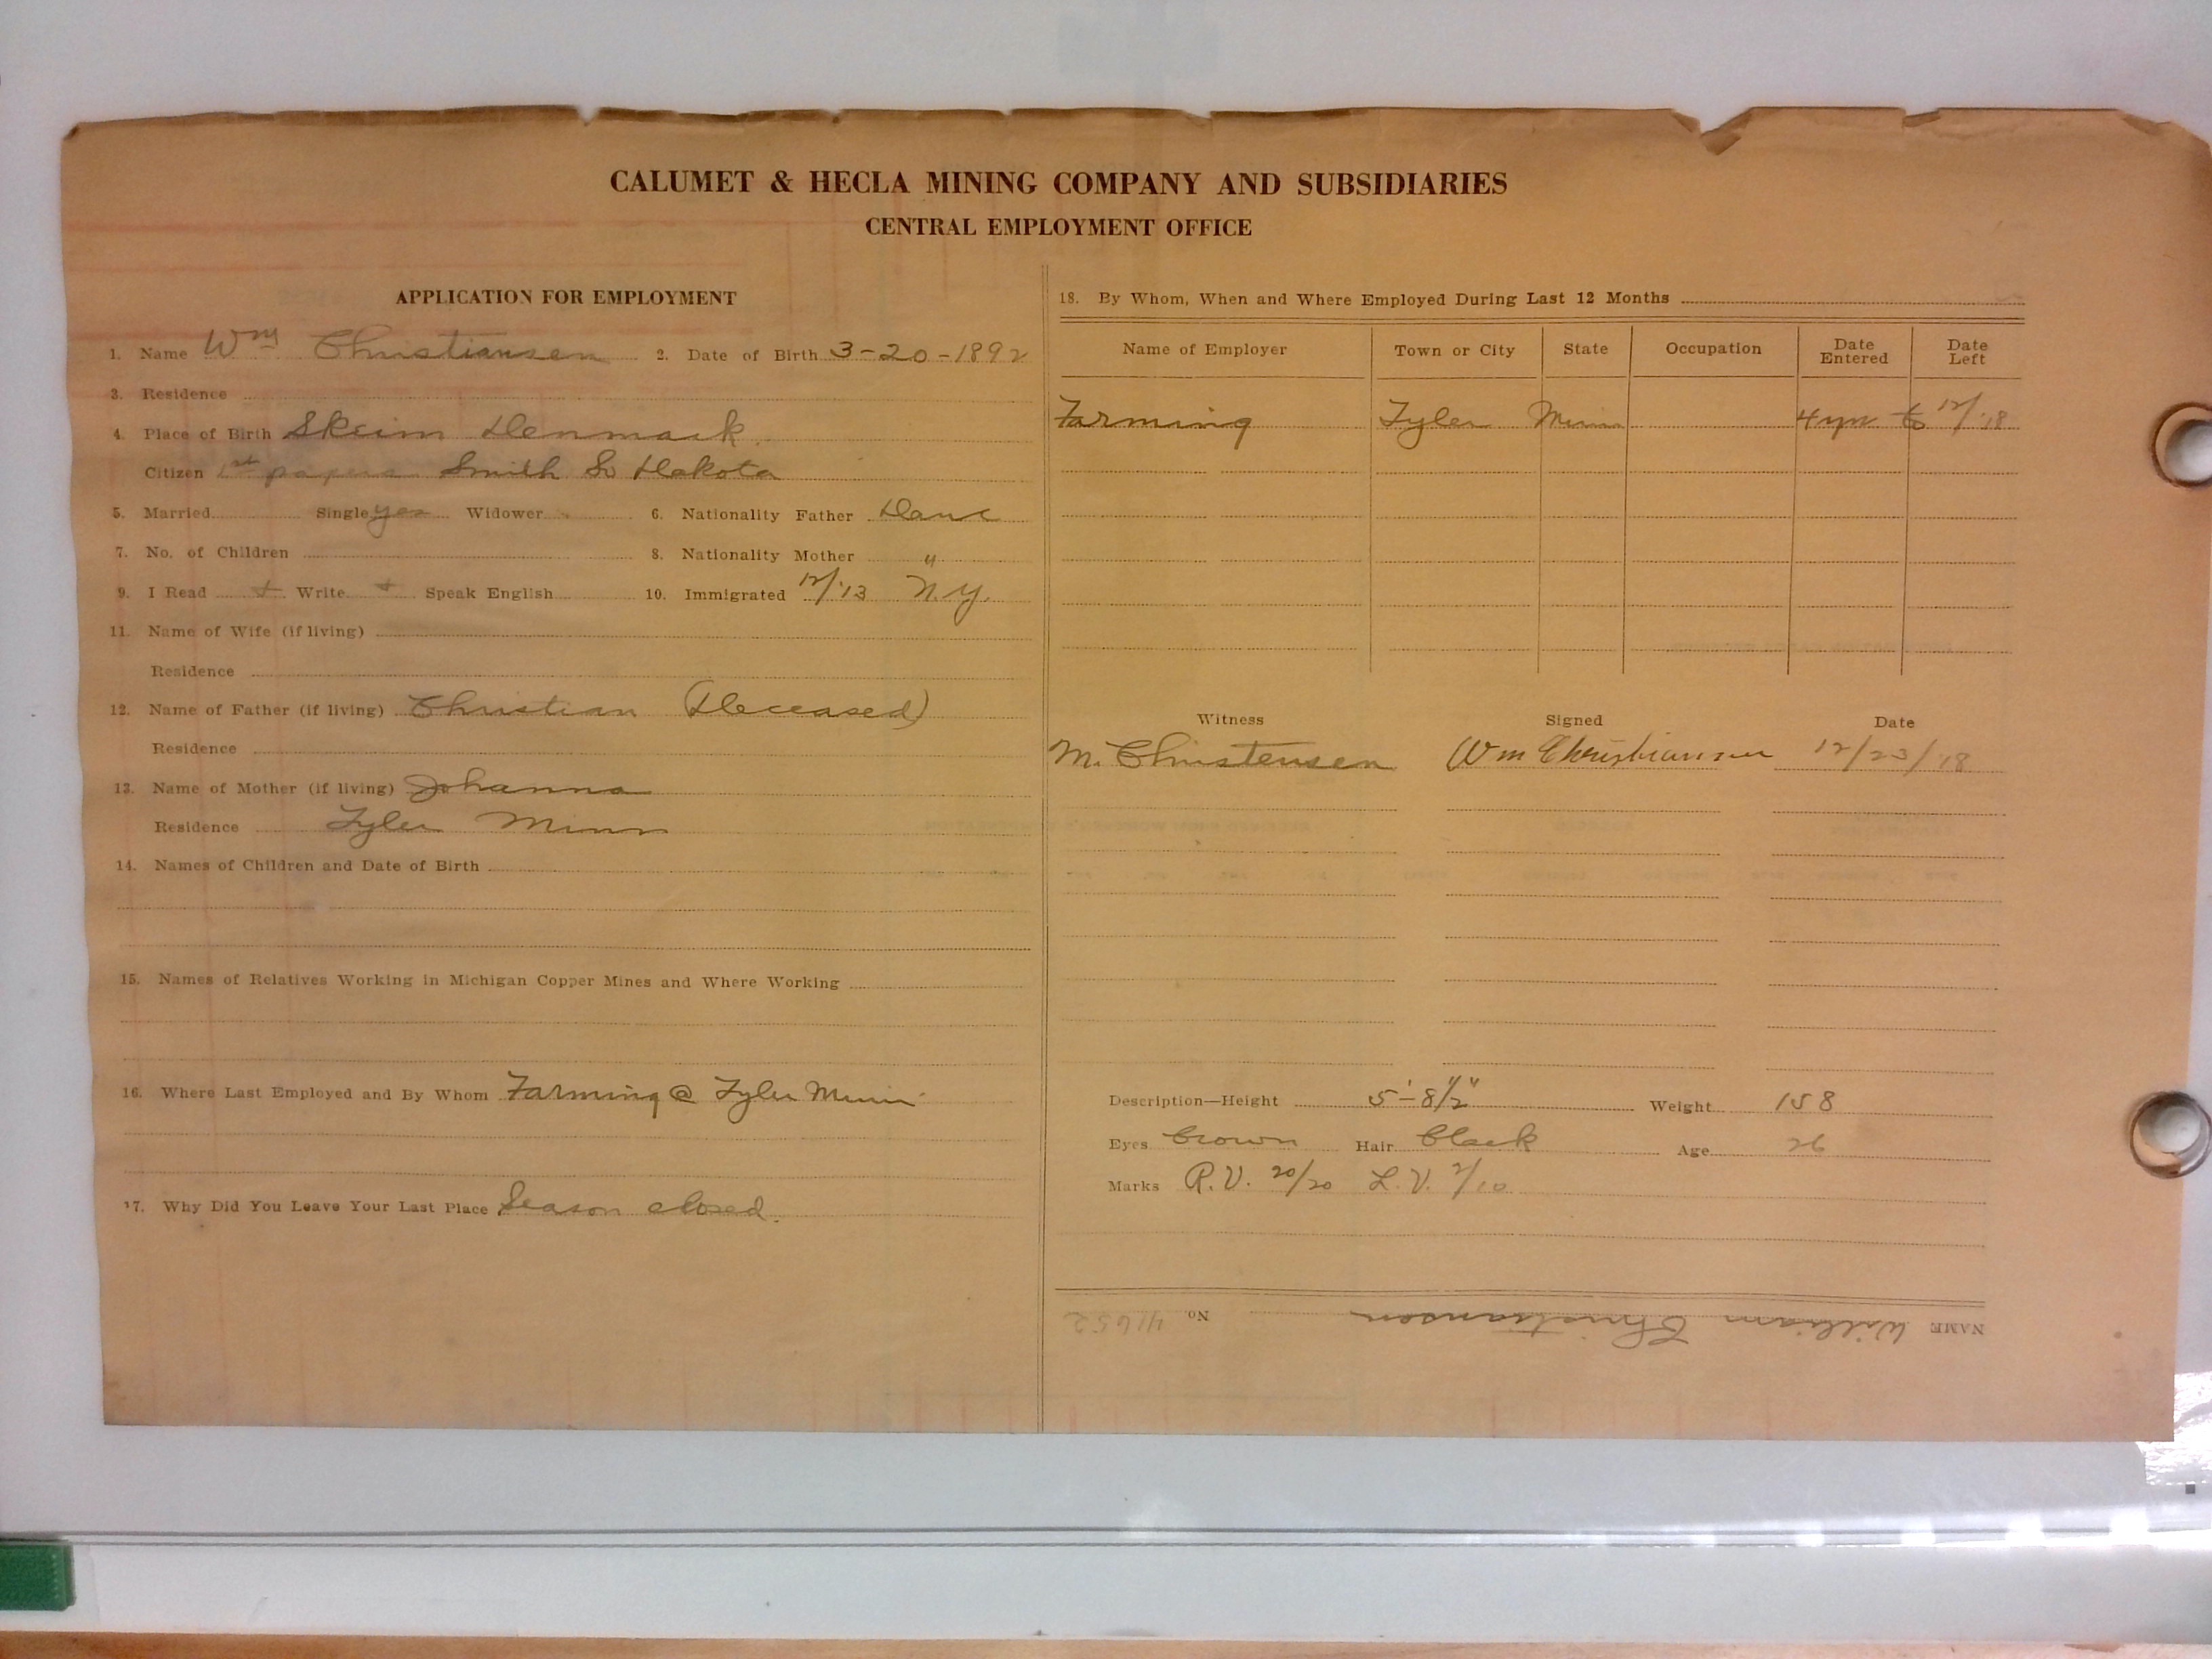 CALUMET & HECLA MINING COMPANY AND SUBSIDIARIES
CENTRAL EMPLOYMENT OFFICE
APPLICATION FOR EMPLOYMENT
1. Name Wm Christiansen 2. Date of Birth 3-20-1892
3. Residence
4. Place of Birth Skeim Denmark
Citizen 1st papers Smith So Dakota
5. Married Single yes Widower 6. Nationality Father Dane
7. No. of Children 8. Nationality Mother "
9. I Read + Write + Speak English 10. Immigrated 12/'13 N.Y.
11. Name of Wife (if living)
Residence
12. Name of Father (if living) Christian (Deceased)
Residence
13. Name of Mother (if living) Johanna
Residence Tyler Minn
14. Names of Children and Date of Birth
15. Names of Relatives Working in Michigan Copper Mines and Where Working
16. Where Last Employed and By Whom Farming @ Tyler Minn
17. Why Did You Leave Your Last Place Season closed.
18. By Whom, When and Where Employed During Last 12 Months
Name of Employer Town or City State Occupation Date Entered Date Left
Farming Tyler Minn 4 yrs to 12/'18
Witness Signed Date
M. Christensen Wm Christiansen 12/23/'18
Description—Height 5'-8 1/2" Weight 158
Eyes brown Hair black Age 26
Marks R.V. 20/20 L.V. 2/10
NAME William Christiansen No. 41652